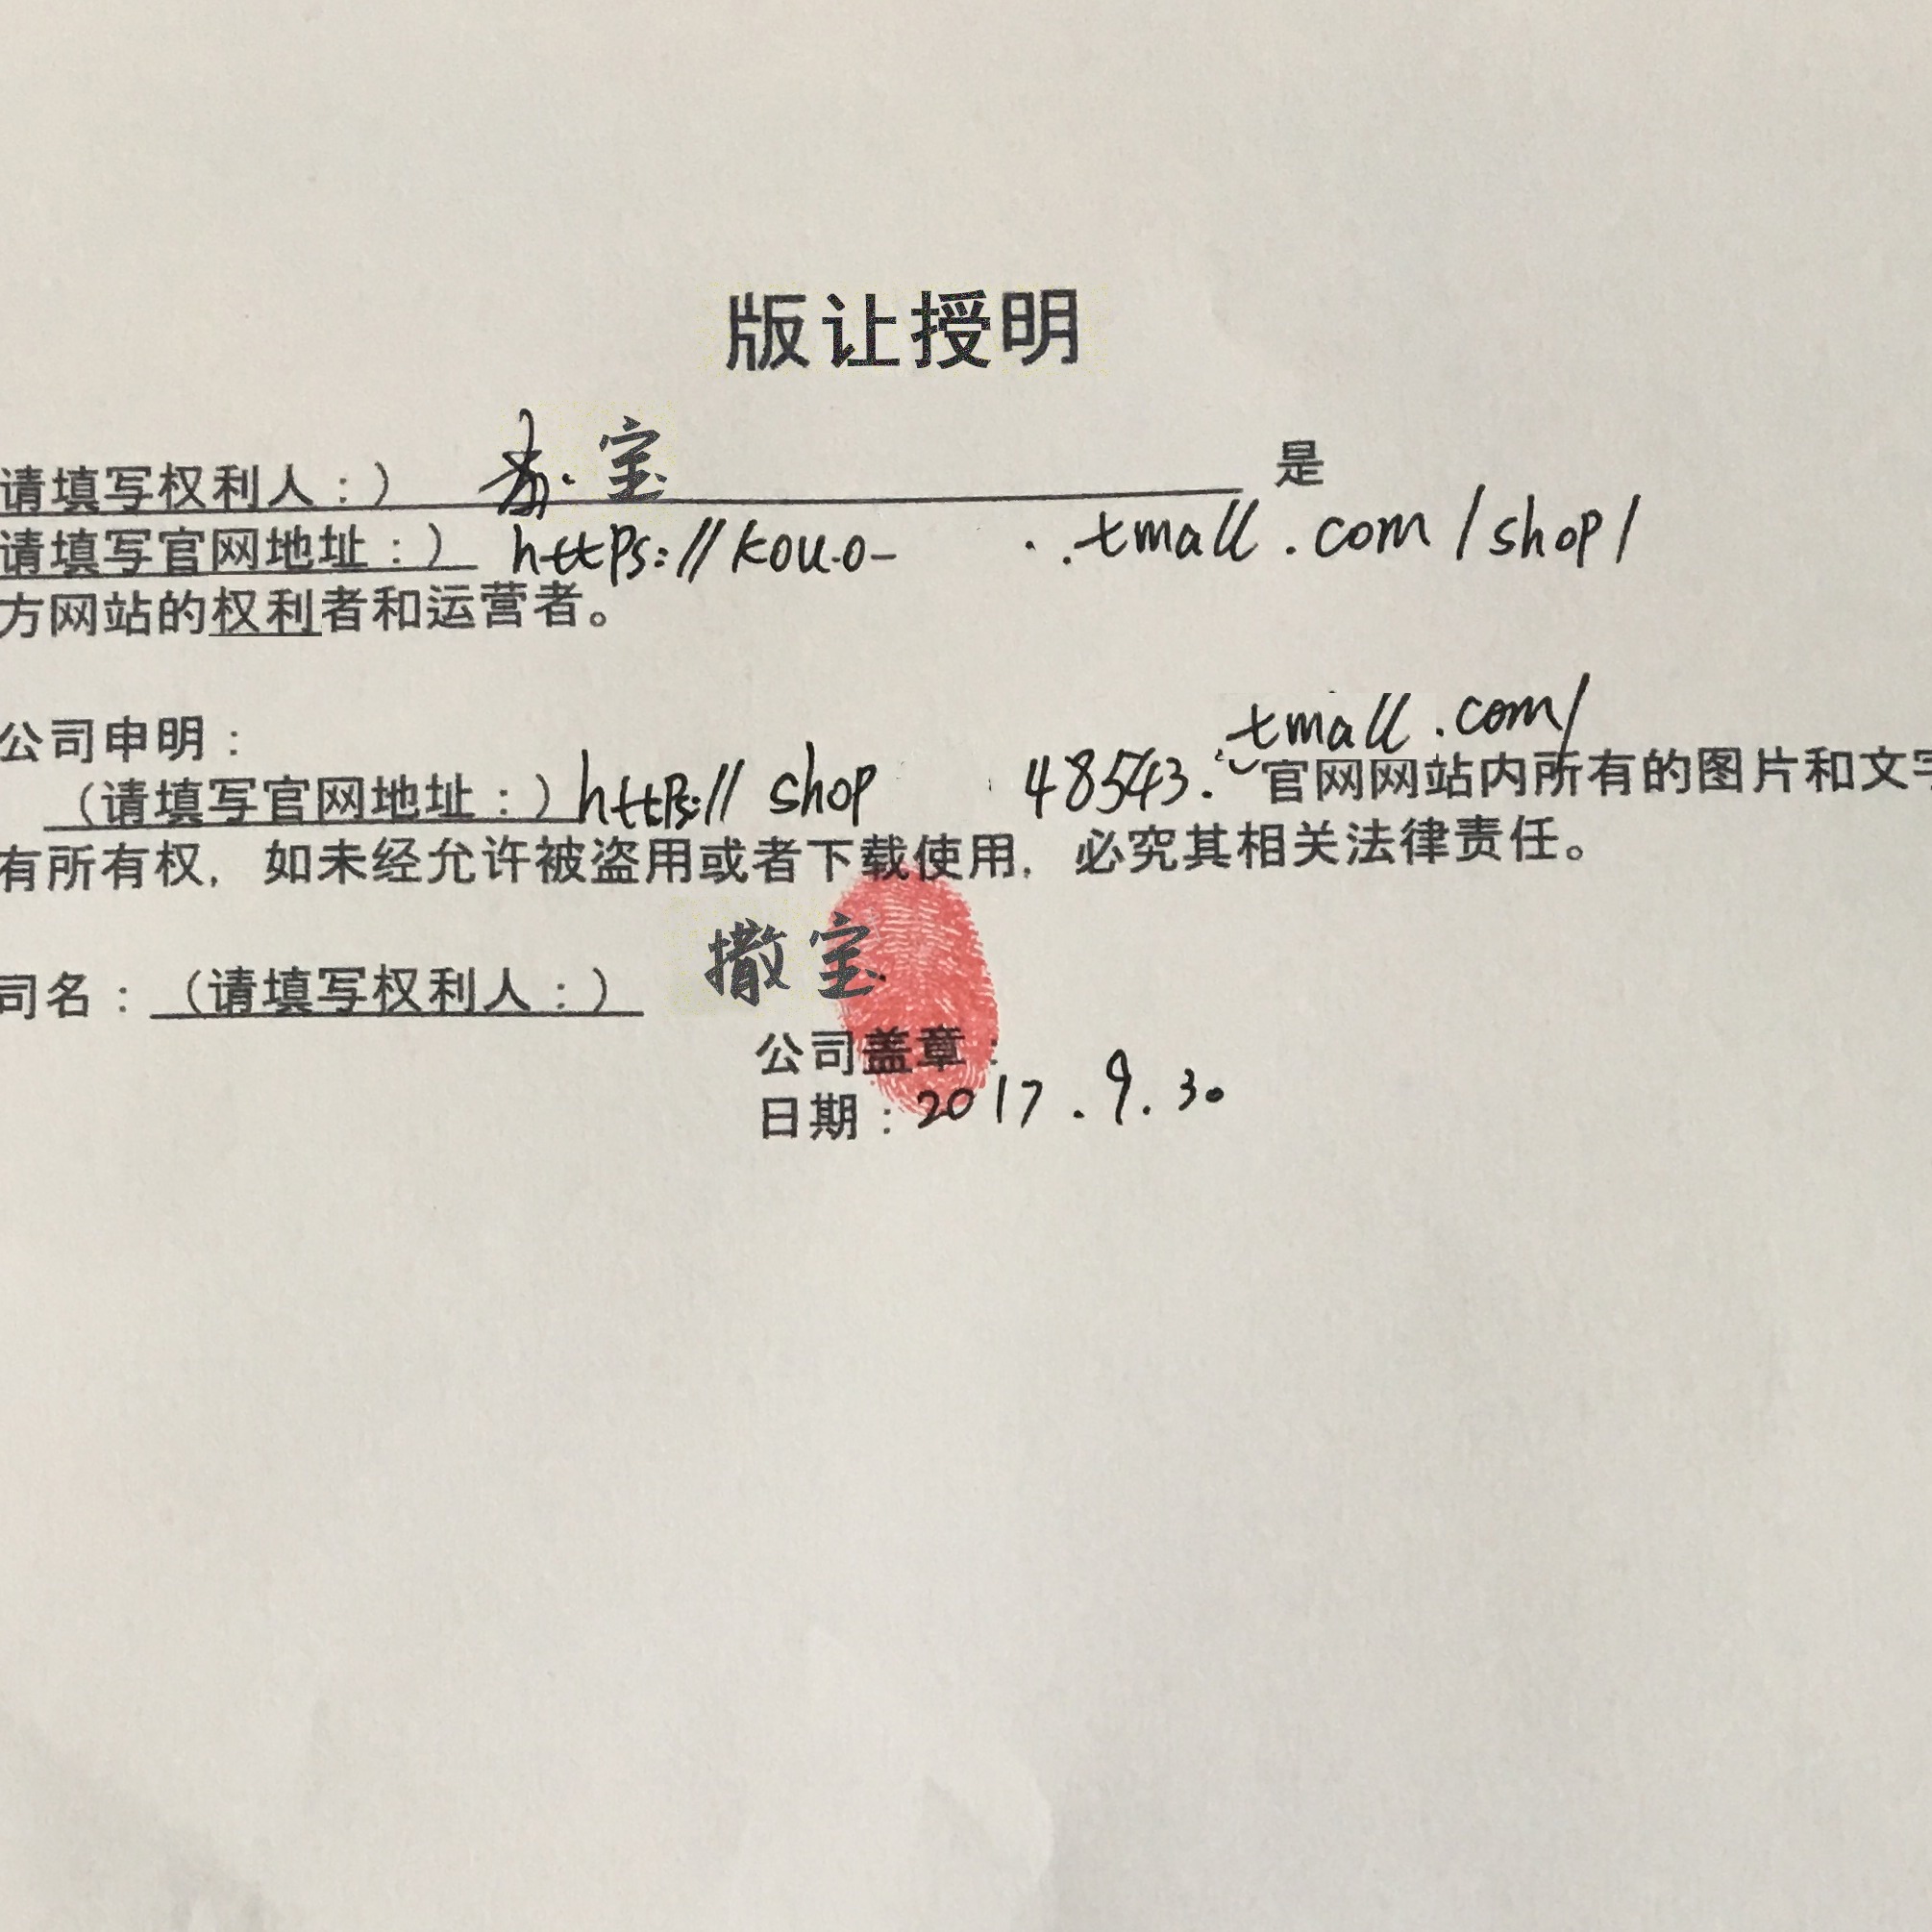 版让授明
请填写权利人：） 宝 是
请填写官网地址：） https://kou.o- ..tmall.com/shop/
方网站的权利者和运营者。
公司申明：
tmall.com/
（请填写官网地址：）https:// shop 48543. 官网网站内所有的图片和文字
有所有权，如未经允许被盗用或者下载使用，必究其相关法律责任。
司名：（请填写权利人：） 撒宝
公司盖章：
日期：2017.9.30